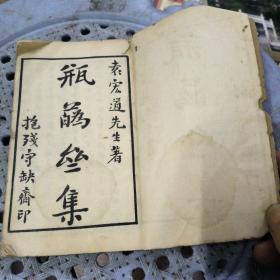 袁宏道先生著
瓶蕅合集
抱殘守缺齋印